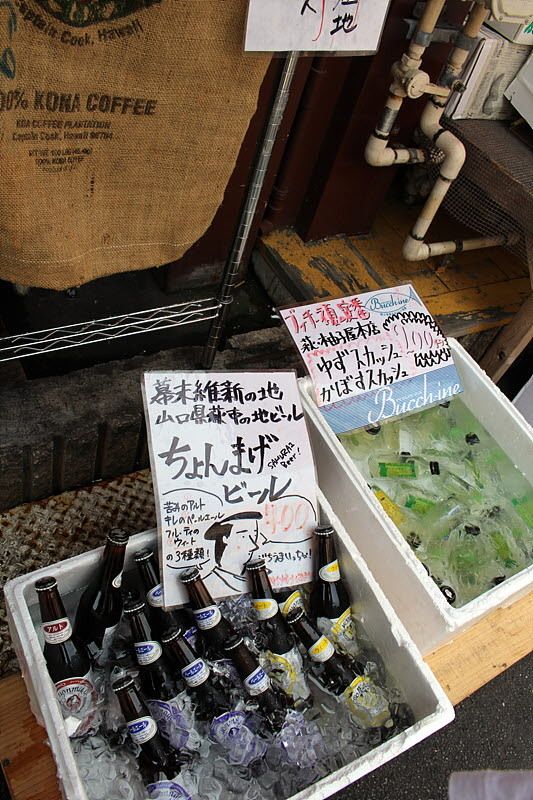 Captain Cook, Hawaii
100% KONA COFFEE
KONA COFFEE PLANTATION
Captain Cook, Hawaii 96704
NET WT 100 LBS
100% KONA COFFEE
地
Bucchine
萩・柚子屋本店
ゆずスカッシュ
かぼすスカッシュ
Bucchine
幕末維新の地
山口県萩市の地ビール
ちょんまげ
ビール
SAMURAI
Beer!
苦みのアルト
キレのペールエール
フルーティの
ウィート
の3種類!
アルト